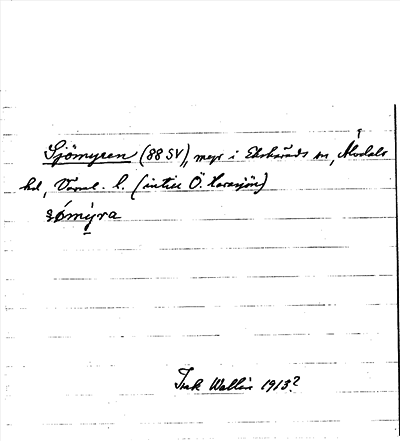 Sjömyren (88 SV), myr i Ekshärads sn, Älvdals
hd, Värml. l. (intill Ö. Havssjön)
sǿmy̱ra
Wallin 1913?